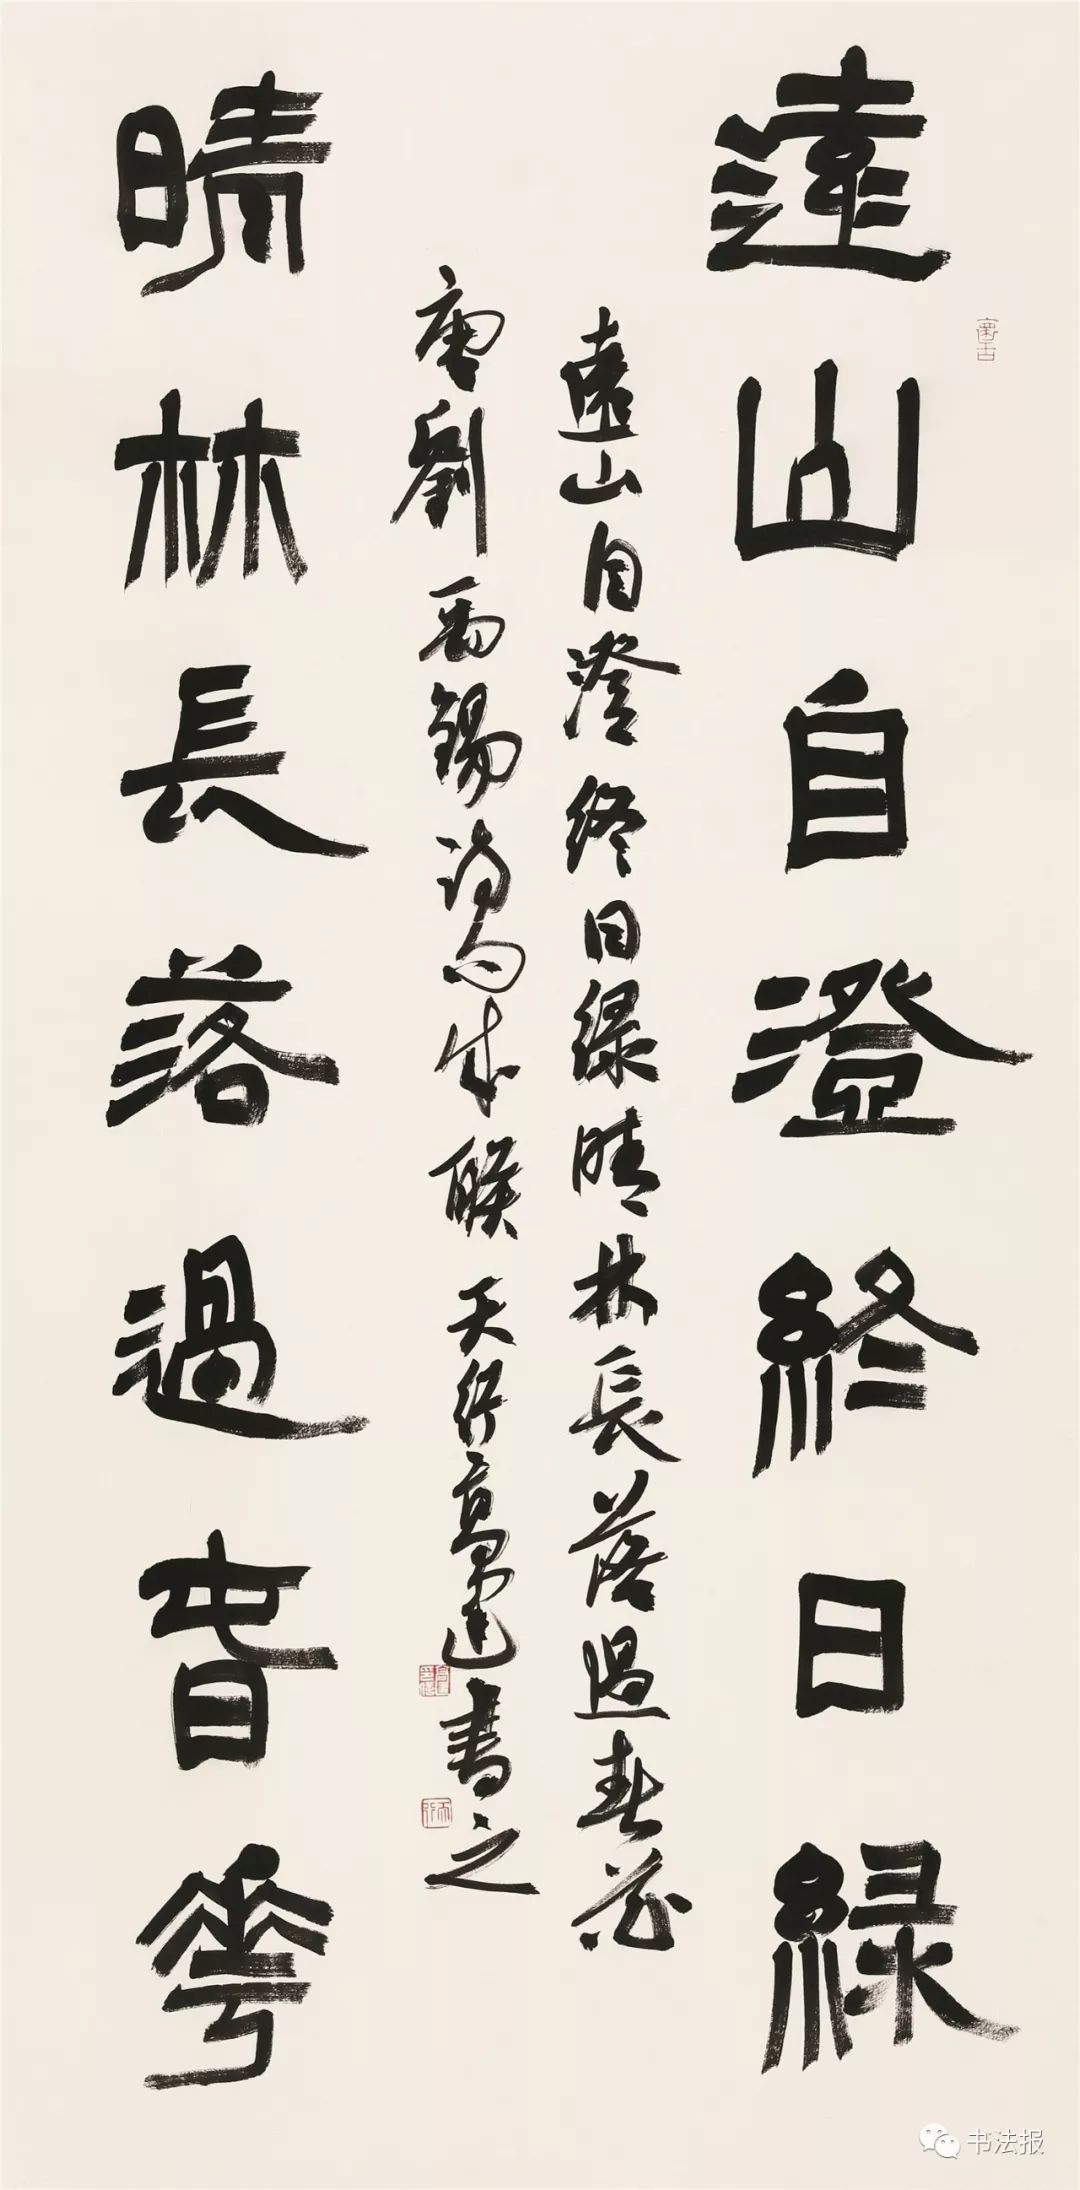 遠山自澄終日緑
晴林長落過春花
遠山自澄終日緑晴林長落過春花
唐劉禹錫詩句成聯天行高建書之
书法报